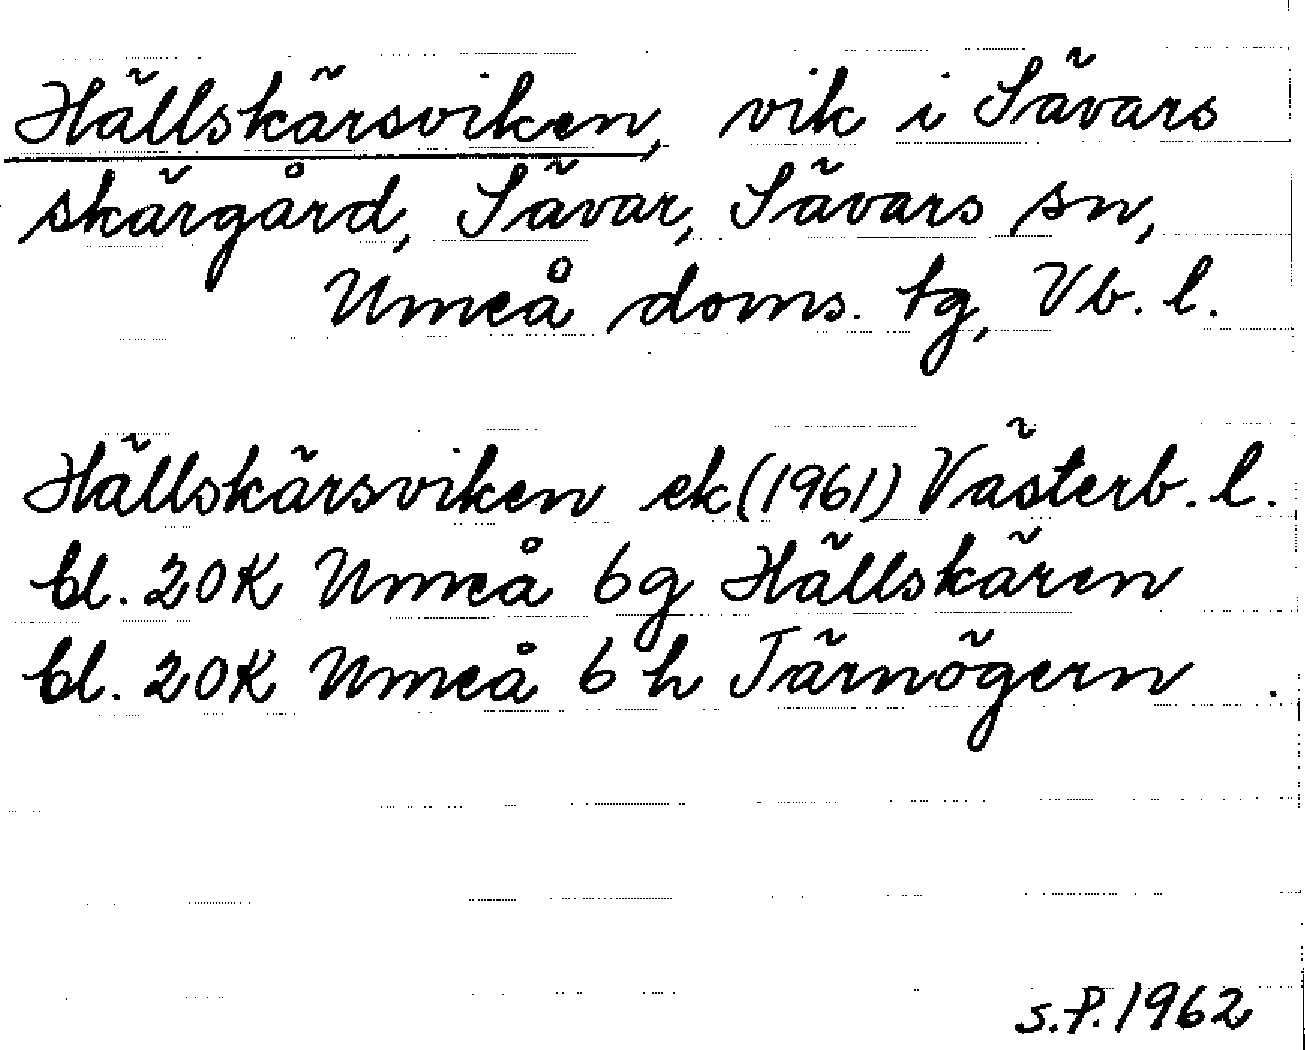 Hällskärsviken, vik i Sävars
skärgård, Sävar, Sävars sn,
Umeå doms. tg, Vb. l.
Hällskärsviken ek (1961) Västerb. l.
bl. 20K Umeå 6g Hällskären
bl. 20K Umeå 6 h Tärnögern
s.P. 1962